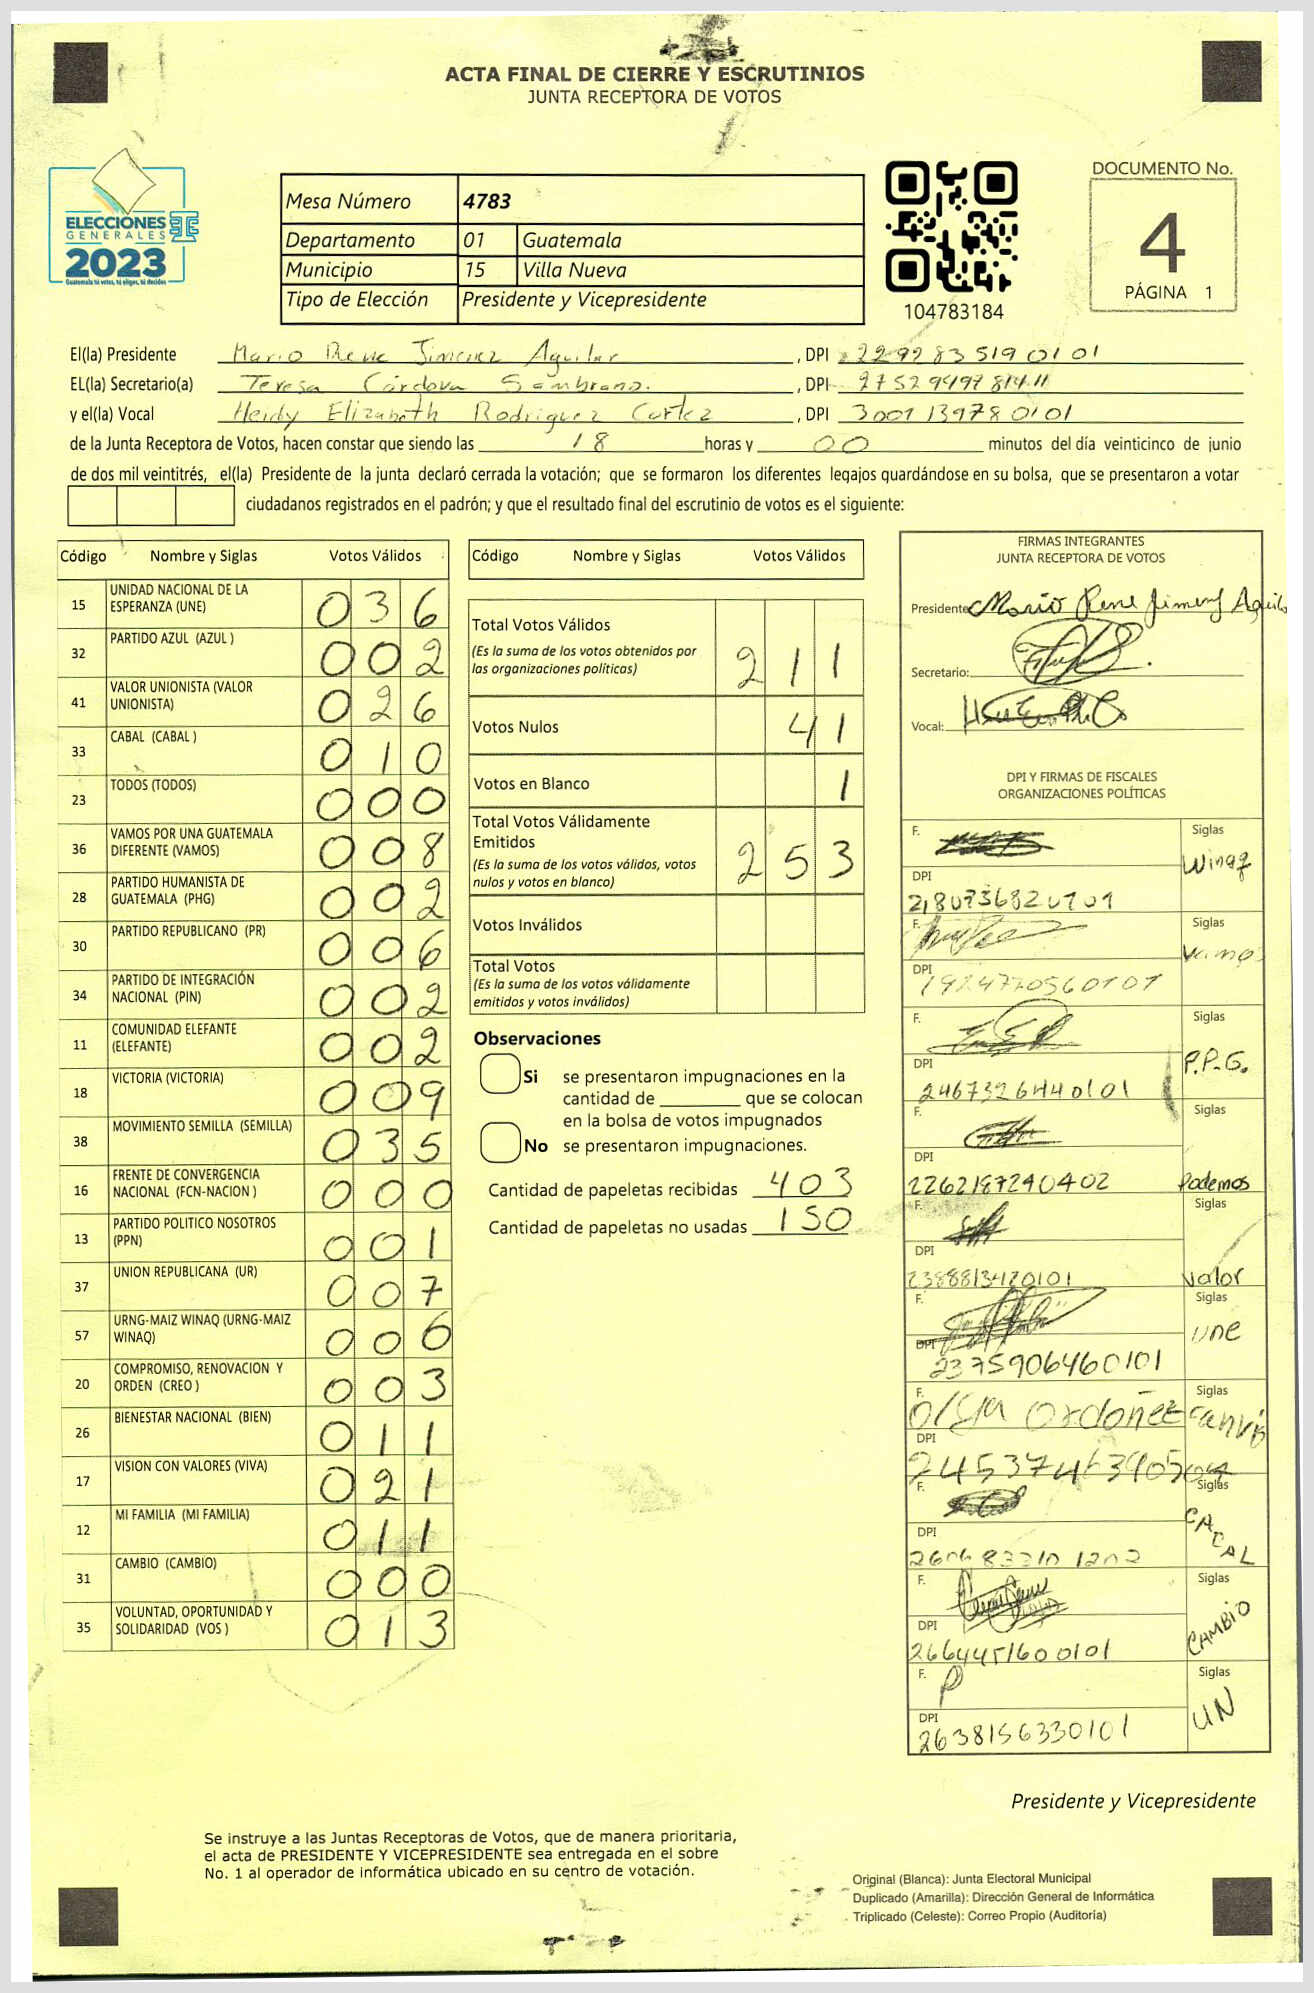 ACTA FINAL DE CIERRE Y ESCRUTINIOS
JUNTA RECEPTORA DE VOTOS
ELECCIONES
GENERALES
2023
Guatemala tú votas, tú eliges, tú decides
Mesa Número 4783
Departamento 01 Guatemala
Municipio 15 Villa Nueva
Tipo de Elección Presidente y Vicepresidente
104783184
DOCUMENTO No.
4
PÁGINA 1
El(la) Presidente Mario Rene Jimenez Aguilar, DPI 2292835190101
EL(la) Secretario(a) Teresa Córdova Sambrano., DPI
y el(la) Vocal Heidy Elizabeth Rodriguez Cortez, DPI 3001139780101
de la Junta Receptora de Votos, hacen constar que siendo las 18 horas y 00 minutos del día veinticinco de junio
de dos mil veintitrés, el(la) Presidente de la junta declaró cerrada la votación; que se formaron los diferentes legajos guardándose en su bolsa, que se presentaron a votar
ciudadanos registrados en el padrón; y que el resultado final del escrutinio de votos es el siguiente:
Código Nombre y Siglas Votos Válidos
15 UNIDAD NACIONAL DE LA ESPERANZA (UNE) 036
32 PARTIDO AZUL (AZUL ) 002
41 VALOR UNIONISTA (VALOR UNIONISTA) 026
33 CABAL (CABAL ) 010
23 TODOS (TODOS) 000
36 VAMOS POR UNA GUATEMALA DIFERENTE (VAMOS) 008
28 PARTIDO HUMANISTA DE GUATEMALA (PHG) 002
30 PARTIDO REPUBLICANO (PR) 006
34 PARTIDO DE INTEGRACIÓN NACIONAL (PIN) 002
11 COMUNIDAD ELEFANTE (ELEFANTE) 002
18 VICTORIA (VICTORIA) 009
38 MOVIMIENTO SEMILLA (SEMILLA) 035
16 FRENTE DE CONVERGENCIA NACIONAL (FCN-NACION ) 000
13 PARTIDO POLITICO NOSOTROS (PPN) 001
37 UNION REPUBLICANA (UR) 007
57 URNG-MAIZ WINAQ (URNG-MAIZ WINAQ) 006
20 COMPROMISO, RENOVACION Y ORDEN (CREO ) 003
26 BIENESTAR NACIONAL (BIEN) 011
17 VISION CON VALORES (VIVA) 021
12 MI FAMILIA (MI FAMILIA) 011
31 CAMBIO (CAMBIO) 000
35 VOLUNTAD, OPORTUNIDAD Y SOLIDARIDAD (VOS ) 013
Código Nombre y Siglas Votos Válidos
Total Votos Válidos 211
(Es la suma de los votos obtenidos por
las organizaciones políticas)
Votos Nulos 41
Votos en Blanco 1
Total Votos Válidamente
Emitidos 253
(Es la suma de los votos válidos, votos
nulos y votos en blanco)
Votos Inválidos
Total Votos
(Es la suma de los votos válidamente
emitidos y votos inválidos)
Observaciones
Si se presentaron impugnaciones en la
cantidad de ________ que se colocan
en la bolsa de votos impugnados
No se presentaron impugnaciones.
Cantidad de papeletas recibidas 403
Cantidad de papeletas no usadas 150
FIRMAS INTEGRANTES
JUNTA RECEPTORA DE VOTOS
Presidente Mario Rene Jimenez Aguilar
Secretario:
Vocal:
DPI Y FIRMAS DE FISCALES
ORGANIZACIONES POLÍTICAS
F. Siglas
Winaq
DPI
F. Siglas
Vamos
DPI
1924770560101
F. Siglas
P.P.G.
DPI
2467326440101
F. Siglas
DPI
2262187240402 Podemos
F. Siglas
DPI
2388813420101 valor
F. Siglas
une
DPI
2375906460101
F. Siglas
Olga Ordoñez
DPI
F. Siglas
CACAL
DPI
F. Siglas
CAMBIO
DPI
2664451600101
F. Siglas
UN
DPI
2638156330101
Presidente y Vicepresidente
Se instruye a las Juntas Receptoras de Votos, que de manera prioritaria,
el acta de PRESIDENTE Y VICEPRESIDENTE sea entregada en el sobre
No. 1 al operador de informática ubicado en su centro de votación.
Original (Blanca): Junta Electoral Municipal
Duplicado (Amarilla): Dirección General de Informática
Triplicado (Celeste): Correo Propio (Auditoría)